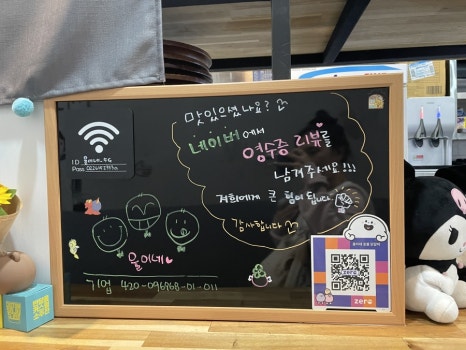 맛있으셨나요?
네이버에서
영수증 리뷰를
남겨주세요!!!
저희에게 큰 힘이 됩니다
감사합니다
ID
Pass
율이네
기업 420-096868-01-011
zero